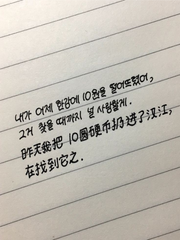 내가 어제 한강에 10원을 떨어뜨렸어,
그거 찾을 때까지 널 사랑할게.
昨天我把10圆硬币扔进了汉江,
在找到它之